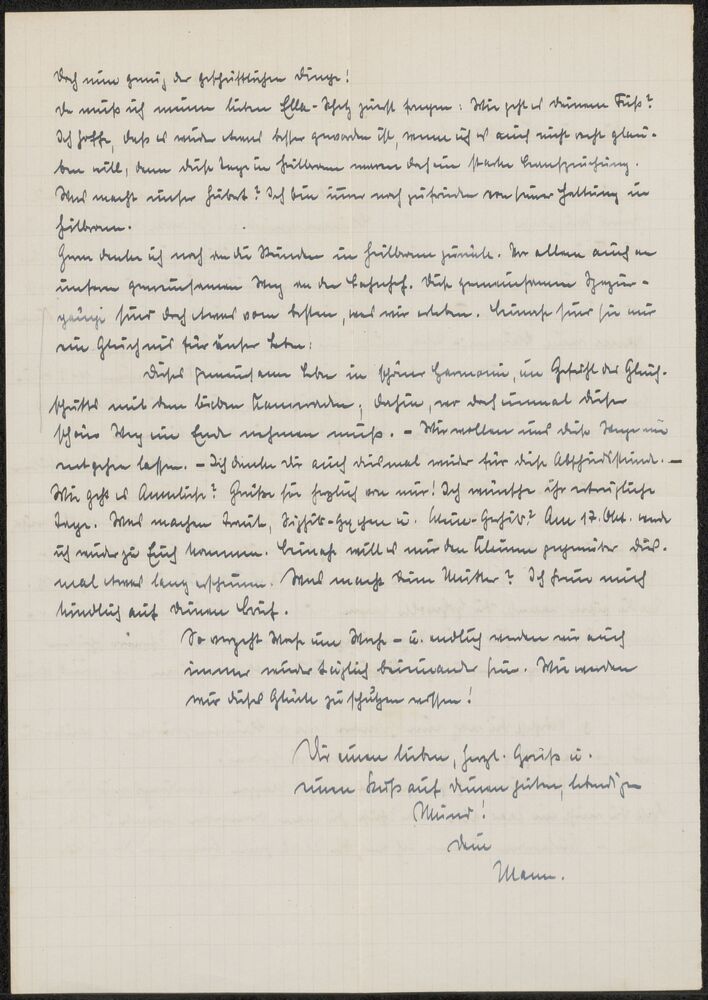 Doch nun genug der geschäftlichen Dinge!
Da muß ich meinen lieben Ella-Schatz zuerst fragen: Wie geht es Deinem Fuß?
Ich hoffe, daß es wieder etwas besser geworden ist, wenn ich es auch nicht recht glau-
ben will, denn diese Tage in Heilbronn waren doch eine starke Beanspruchung.
Was macht unser Hubert? Ich bin immer noch zufrieden von seiner Haltung in
Heilbronn.
Gern denke ich noch an die Stunden in Heilbronn zurück. Vor allem auch an
unseren gemeinsamen Weg an den Bahnhof. Diese gemeinsamen Spazier-
gänge sind doch etwas vom besten, was wir erleben. Beinahe sind sie mir
ein Gleichnis für unser Leben:
Dieses gemeinsame Leben in schöner Harmonie, im Gefühl des Gleich-
schritts mit dem lieben Kameraden; dahin, wo doch einmal dieser
schöne Weg ein Ende nehmen muß. - Wir wollen uns diese Wege nie
entgehen lassen. - Ich danke Dir auch diesmal wieder für diese Abschiedsstunde. -
Wie geht es Annelies? Grüße sie herzlich von mir! Ich wünsche ihr
Tage. Was machen Traute, u. Klein-? Am 17. Okt. werde
ich wieder zu Euch kommen. Beinahe will es mir den Kleinen gegenüber dies-
mal etwas lang erscheinen. Was macht Deine Mutter? Ich freue mich
kindlich auf Deinen Brief.
So vergeht Woche um Woche - u. endlich werden wir auch
immer wieder täglich beieinander sein. Wie werden
wir dieses Glück zu schätzen wissen!
Dir einen lieben, herzl. Gruß u.
einen Kuß auf Deinen guten, lebendigen
Mund!
Dein
Mann.